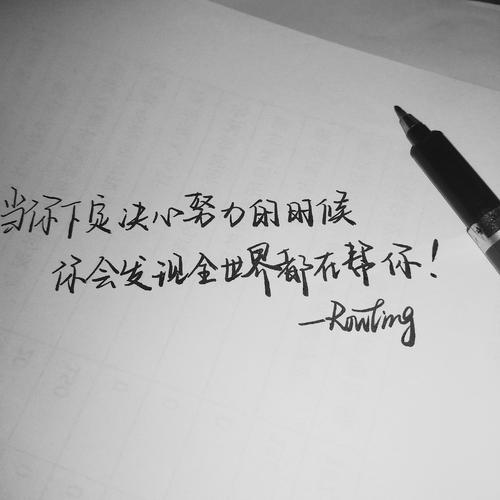 当你下定决心努力的时候
你会发现全世界都在帮你!
—Rowling